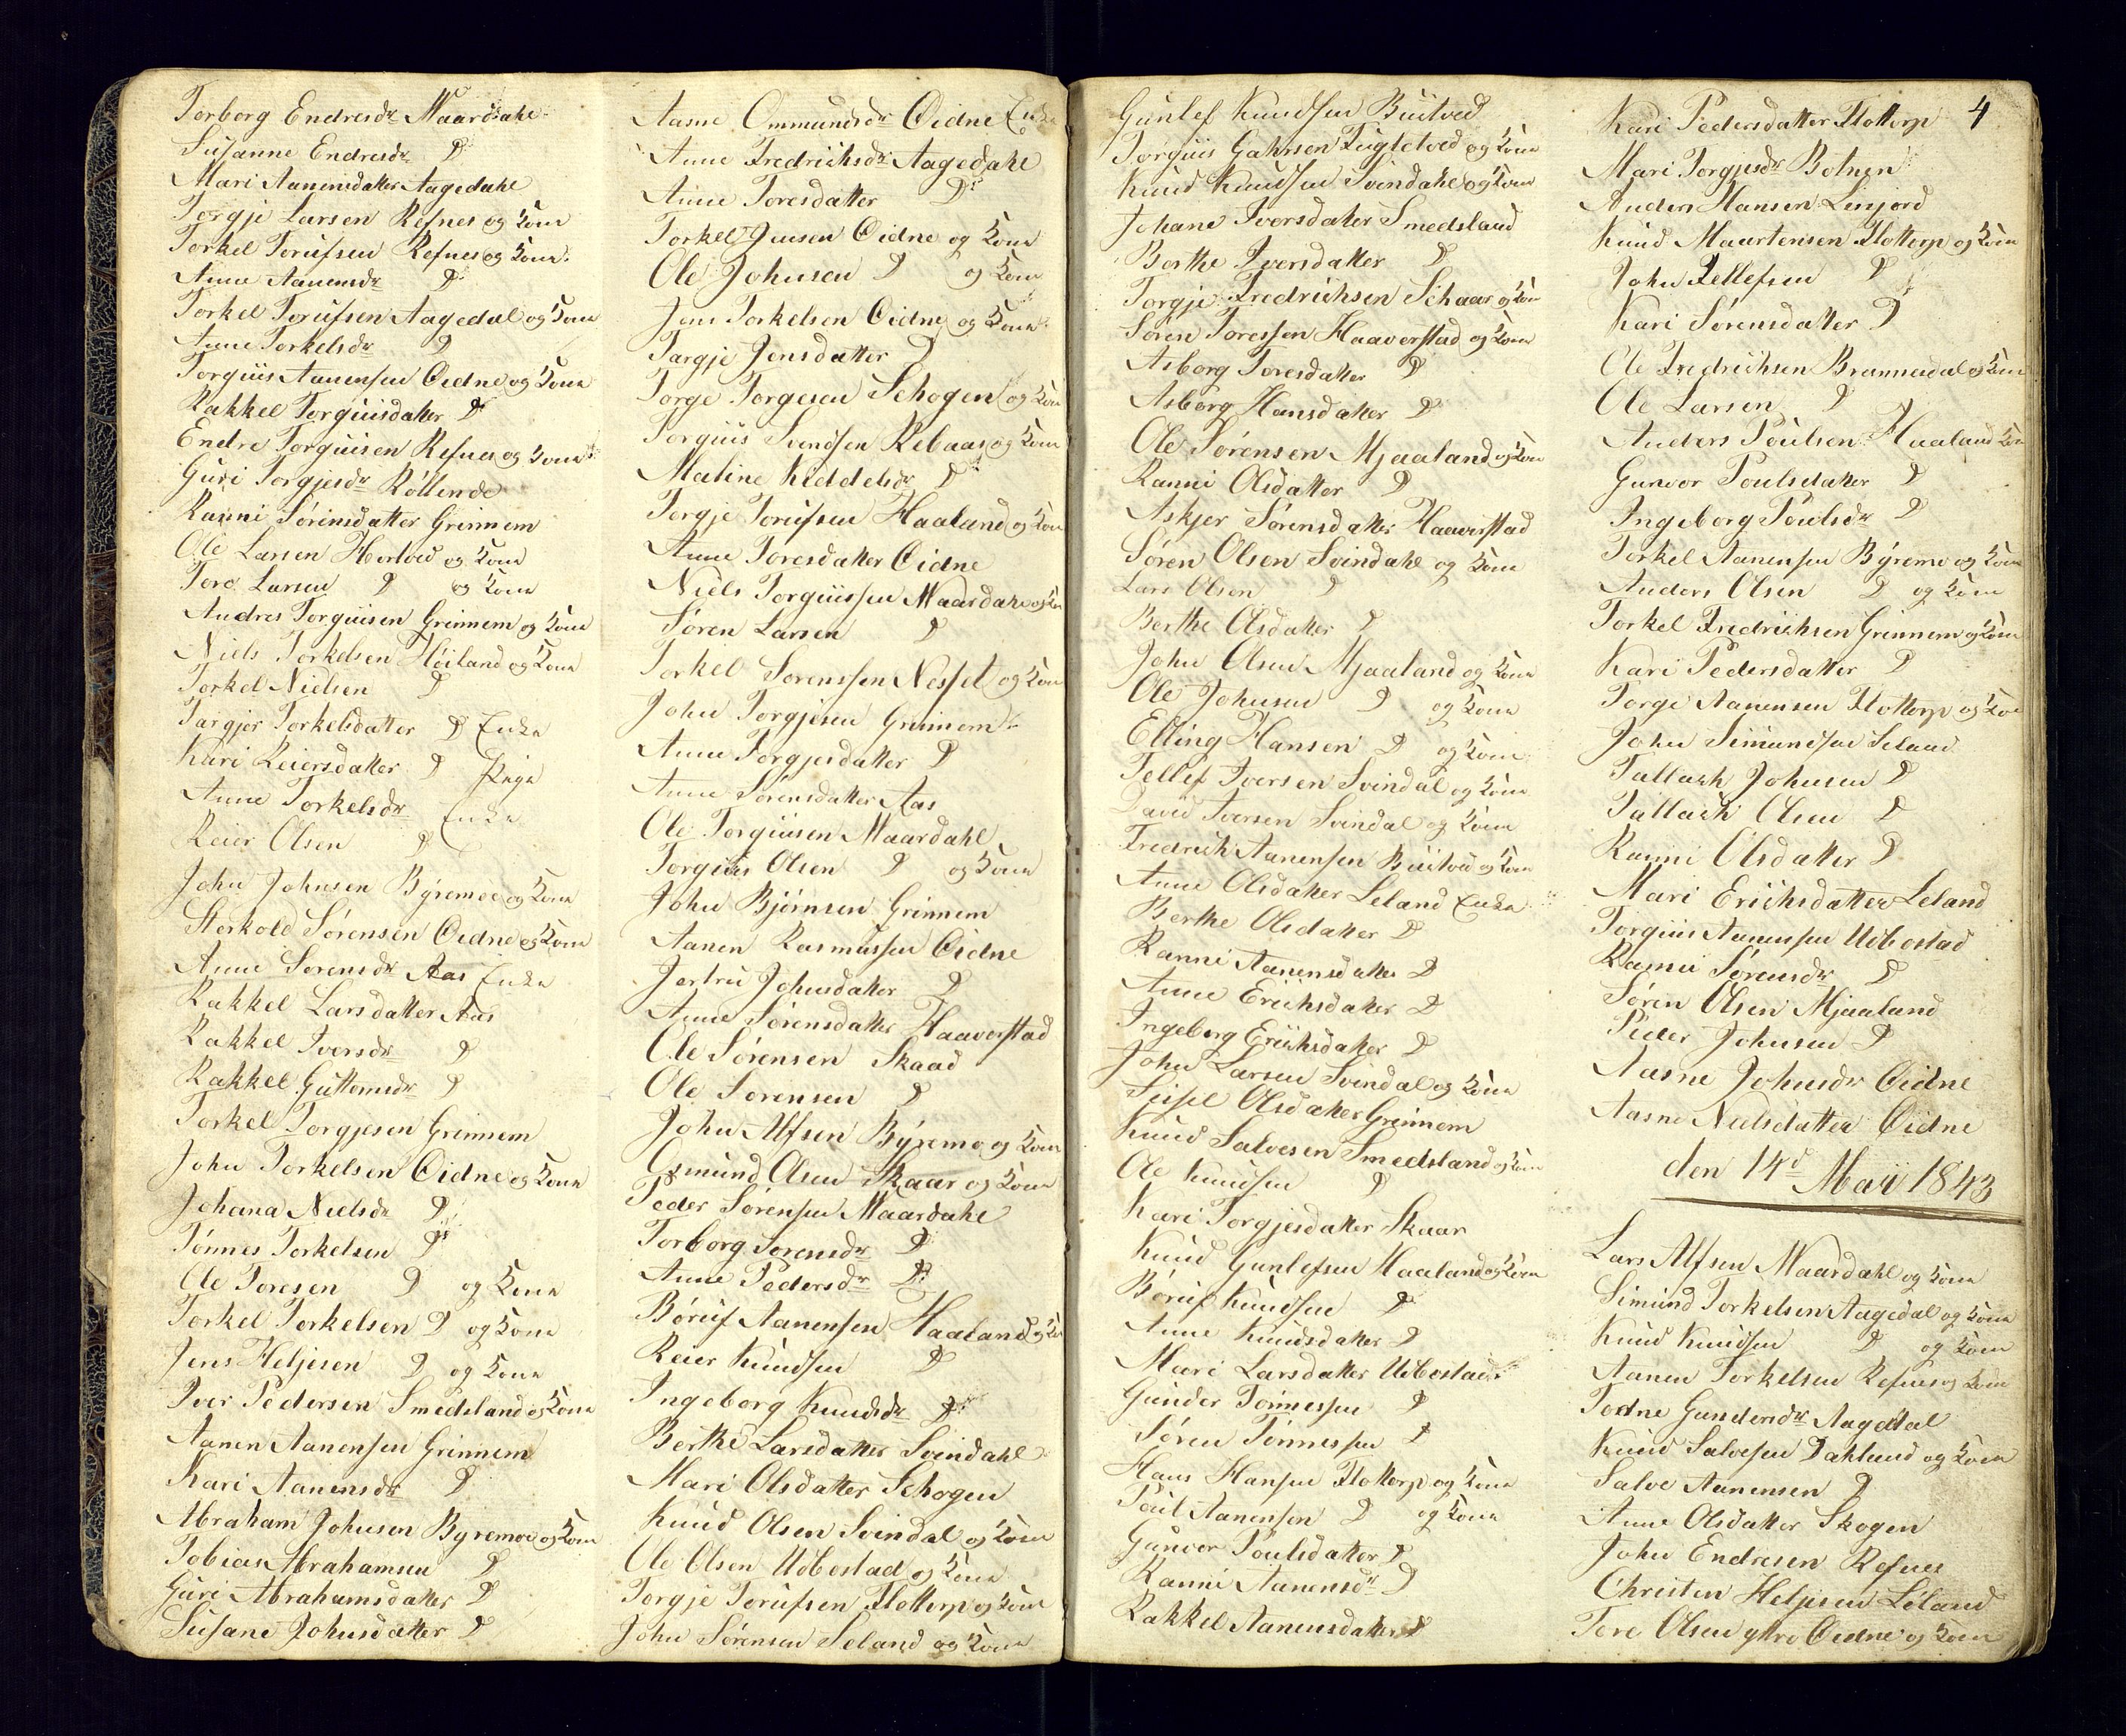 Torborg Endresdr Maardahl
Susanne Endresdr D
Mari Aanensdatter Aagedahl
Torgje Larsen Refnes og Kone
Torkel Torufsen Refnes og Kone
Anne Aanensdr D
Torkel Torufsen Aagedal og Kone
Anne Torkelsdr D
Torguis Aanensen Oidne og Kone
Rakkel Torguisdatter D
Endre Torguisen Refnes og Kone
Guri Torgjesdr Röllende
Ranni Sörensdatter Grinnem
Ole Larsen og Kone
Tore Larsen D og Kone
Andres Torguisen Grinnem og Kone
Niels Torkelsen Höiland og Kone
Torkel Nielsen D
Targjer Torkelsdatter D Enke
Kari Reiersdatter D Pige
Anne Torkelsdr Enke
Reier Olsen D
John Johnsen Býremoe og Kone
Storkold Sörensen Oidne og Kone
Anne Sorensdr Aas Enke
Rakkel Larsdatter Aas
Rakkel Iversdr D
Rakkel Guttomsdr D
Torkel Torgjesen Grinnem
John Torkelsen Oidne og Kone
Johana Nielsdr D
Tönnes Torkelsen D
Ole Toresen D og Kone
Torkel Torkelsen D og Kone
Jens Heljesen D og Kone
Iver Pedersen Smedsland og Kone
Aanen Aanensen Grinnem
Kari Aanensdr D
Abraham Johnsen Byremoe og Kone
Tobias Abrahamsen D
Guri Abrahamsdatter D
Susane Johnsdatter D
Aasne Ommundsdr Oidne Enke
Anne Fredrichsdr Aagedahl
Anne Toresdatter D
Torkel Jensen Oidne og Kone
Ole Johnsen D og Kone
Jens Torkelsen Oidne og Kone
Targje Jensdatter D
Torge Torgesen Schogen og Kone
Torguis Svendsen Rebaas og Kone
Maline Keddelsdr D
Torgje Torufsen Haaland og Kone
Anne Toresdatter Oidne
Niels Torguissen Maardahl og Kone
Sören Larsen D
Torkel Sorenssen Nesset og Kone
John Torgjesen Grinnem
Anne Torgjesdatter D
Anne Sörensdatter Aas
Ole Torguisen Maardahl
Torguis Olsen D og Kone
John Björnsen Grinnem
Aanen Rasmussen Oidne
Jertru Johnsdatter D
Anne Sörensdatter Haaverstad
Ole Sörensen Skaad
Ole Sorensen D
John Alfsen Býremo og Kone
Osmund Olsen Skaar og Kone
Peder Sörensen Maardahl
Torborg Sorensdr D
Anne Pedersdr D
Böruf Aanensen Haaland og Kone
Reier Knudsen D
Ingeborg Knudsdr D
Berthe Larsdatter Svindahl
Mari Olsdatter Schogen
Knud Olsen Svindal og Kone
Ole Olsen Udbostad og Kone
Torgje Torufsen Flottorp og Kone
John Sörensen Seland og Kone
Gunlef Knudsen Buitved
Torguis Gahrsen Fugletved og Kone
Knud Knudsen Svindahl og Kone
Johane Iversdatter Smedsland
Berthe Iversdatter D
Torgje Fredrichsen Schaar og Kone
Sören Toressen Haaverstad og Kone
Asborg Toresdatter D
Asborg Hansdatter D
Ole Sörensen Mjaaland og Kone
Ranni Olsdatter D
Askjer Sörensdatter Haaverstad
Sören Olsen Svindahl og Kone
Lars Olsen D
Berthe Olsdatter D
John Olsen Mjaaland og Kone
Ole Johnsen D og Kone
Elling Hansen D og Kone
Tellef Iversen Svindal og Kone
David Iversen Svindal og Kone
Fredrich Aanensen Buitved og Kone
Anne Olsdatter Leland Enke
Berthe Olsdatter D
Ranni Aanensdatter D
Anne Erichsdatter D
Ingeborg Erichsdatter D
John Larsen Svindal og Kone
Sissel Olsdatter Grinnem
Knud Salvesen Smedsland og Kone
Ole Knudsen D
Kari Torgjesdatter Skaar
Knud Gunlefsen Haaland og Kone
Böruf Knudsen D
Anne Knudsdatter D
Mari Larsdatter Udbostad
Gunder Tönnessen D
Sören Tönnessen D
Hans Hansen Flottorp og Kone
Poul Aanensen D og Kone
Gunvor Poulsdatter D
Ranni Aanensdr D
Rakkel Aanensdatter D
4
Kari Pedersdatter Flottorp
Mari Torgjesdr Botnen
Anders Hansen Linjord
Knud Maartensen Flottorp og Kone
John Tellefsen D
Kari Sörensdatter D
Ole Fredrichsen Brannadal og Kone
Ole Larsen D
Anders Poulsen Haaland Kone
Gunvor Poulsdatter D
Ingeborg Poulsdr D
Torkel Aanensen Býremo og Kone
Anders Olsen D og Kone
Torkel Fredrichsen Grinnem og Kone
Kari Pedersdatter D
Torge Aanensen Flottorp og Kone
John Simundsen Seland
Tallach Johnsen D
Tallach Olsen D
Ranni Olsdatter D
Mari Erichsdatter Leland
Torguis Aanensen Udbostad
Ranni Sörensdr D
Sören Olsen Mjaaland
Peder Johnsen D
Aasne Johnsdr Oidne
Aasne Nielsdatter Oidne
den 14d Maÿ 1843
Lars Alfsen Maardahl og Kone
Simund Torkelsen Aagedal og Kone
Knud Knudsen D og Kone
Aanen Torkelsen Refnes og Kone
Todne Gundersdr Aagedal
Knud Salvesen Dahland og Kone
Salve Aanensen D
Anne Olsdatter Skogen
John Endresen Refnes
Christen Heljesen Leland
Tore Olsen ytre Oidne og Kone